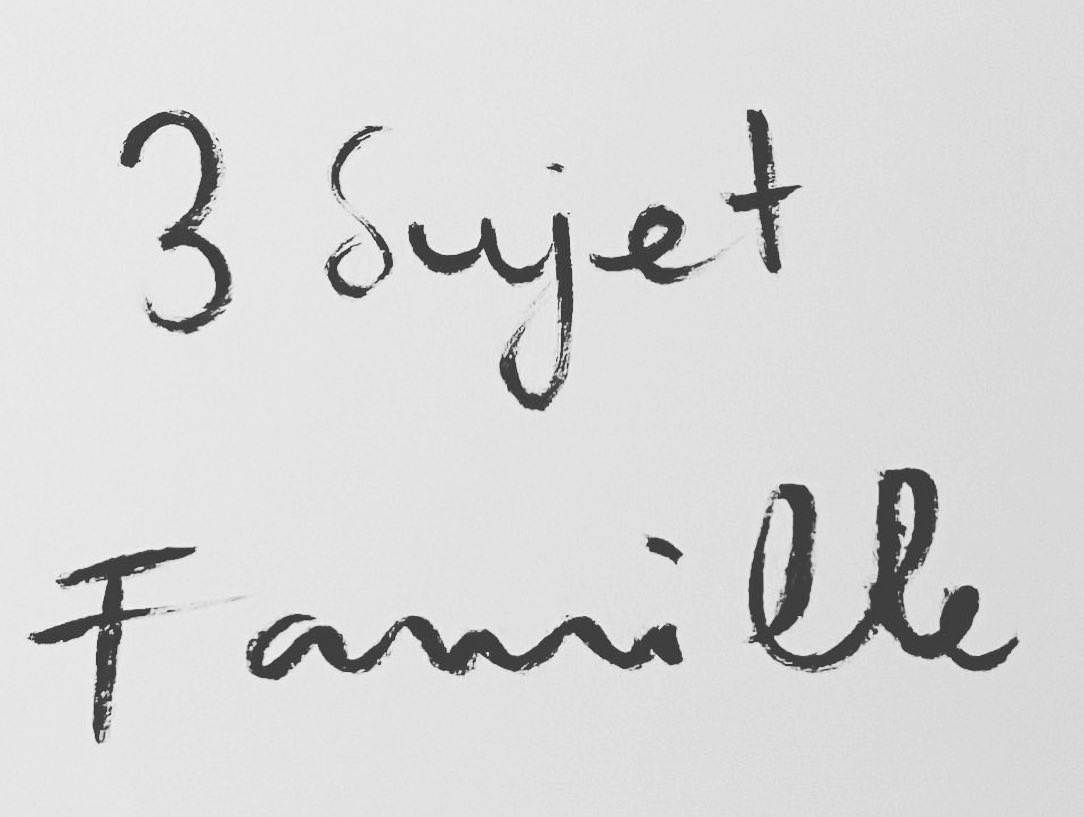 3 Sujet
Famille